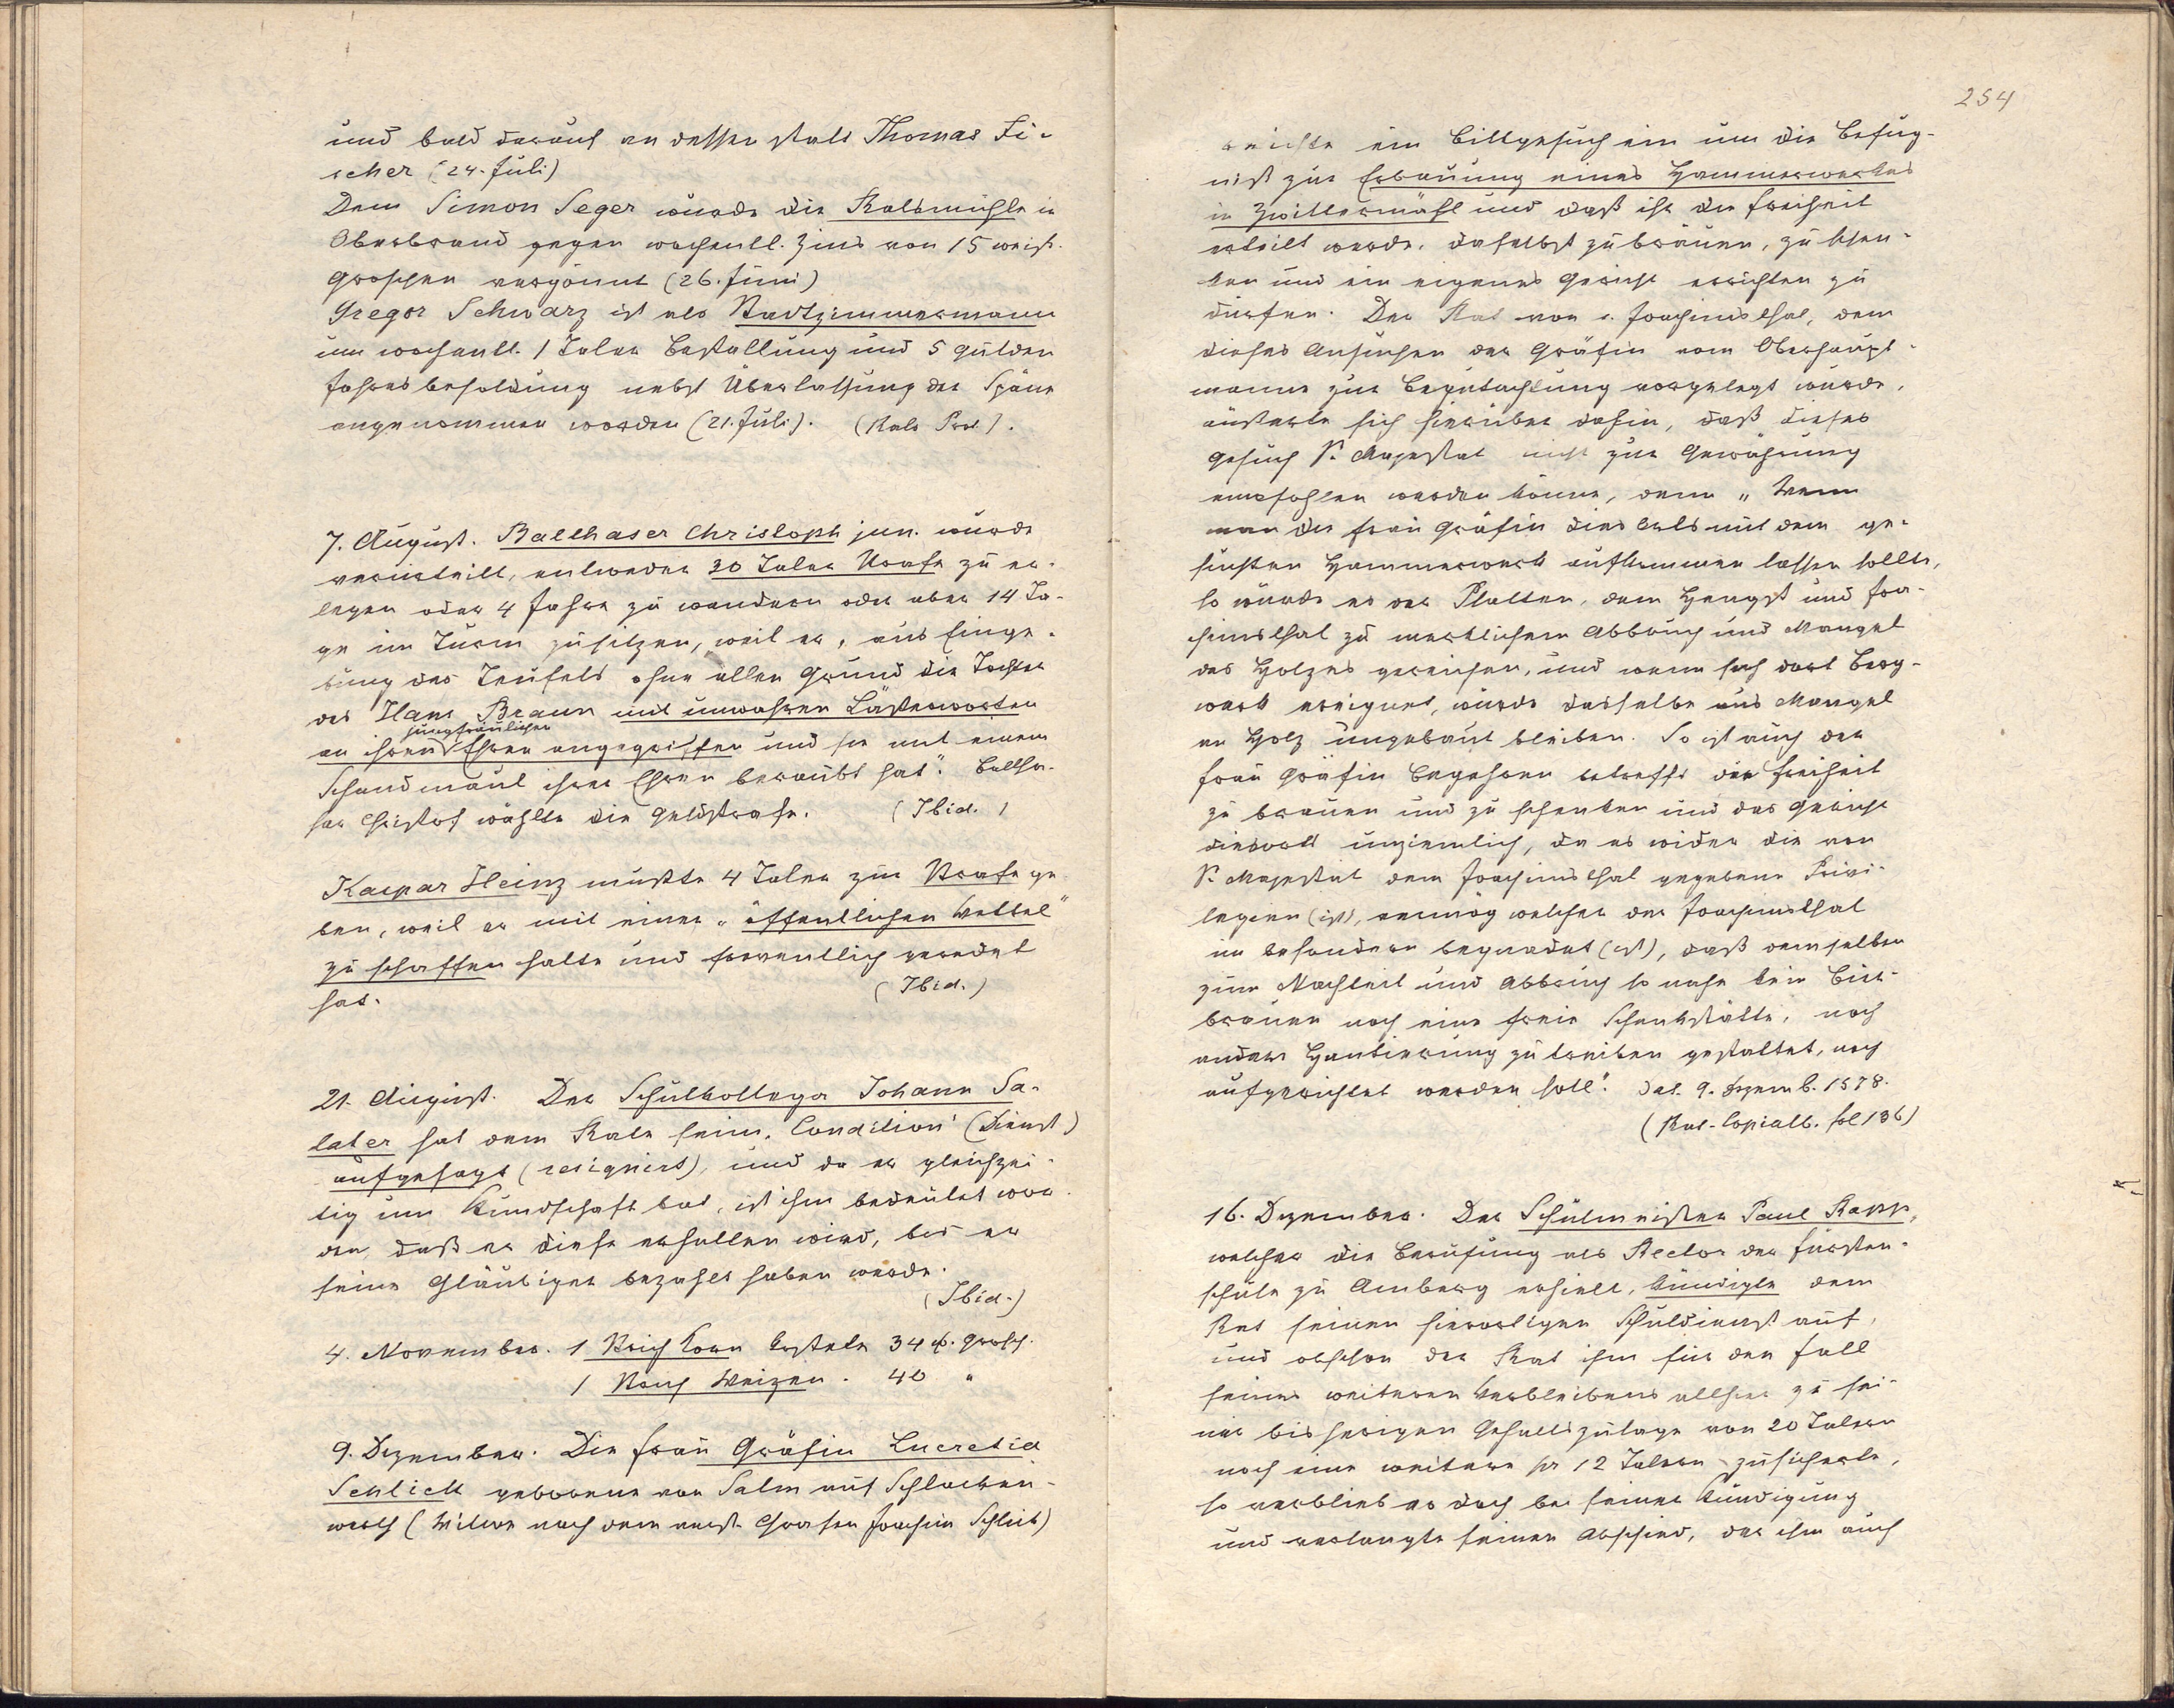 und bald darauf an dessen statt Thomas Fi-
scher (24. Juli)
Dem Simon Seger wurde die Ratsmühle in
Oberbrand gegen wochentl. Zins von 15 weiß.
Groschen vergönnt (26. Juni)
Gregor Schwarz ist als Stadtzimmermann
um wochentl. 1 Taler Bestallung und 5 Gulden
Jahresbesoldung nebst Überlassung der Späne
angenommen worden (21. Juli). (Rats Prot.).
7. August. Balthaser Christoph jun. wurde
verurteilt, entweder 30 Taler Strafe zu er-
legen oder 4 Jahre zu wandern oder aber 14 Ta-
ge im Turm zu sitzen, weil er, aus Einge-
bung des Teufels ohne allen Grund die Tochter
des Hans Braun mit unwahren Lästerworten
jungfräulichen
an ihren Ehren angegriffen und sie mit einem
Schandmaul ihrer Ehren beraubt hat". Baltha-
sar Christof wählte die Geldstrafe. (Ibid.)
Kaspar Heinz mußte 4 Taler zur Strafe ge-
ben, weil er mit einer „öffentlichen Vettel"
zu schaffen hatte und freventlich geredet
hat. (Ibid.)
21. August. Der Schulkollega Johann Sa-
later hat dem Rate seine „Condition" (Dienst)
aufgesagt (resigniert), und da er gleichzei-
tig um Kundschaft bat, ist ihm bedeutet wor-
den, daß er diese erhalten wird, bis er
seine Gläubiger bezahlt haben werde.
(Ibid.)
4. November. 1 Strich Korn kostete 34 w. Grosch.
1 Strich Weizen. 40 "
9. Dezember. Die Frau Gräfin Lucretia
Schlick geborene von Salm auf Schlacken-
werth (Witwe nach dem verst. Grafen Joachim Schlick)
254
reichte ein Bittgesuch ein um die Befug-
nis zur Erbauung eines Hammerwerkes
in Zwittermühl und daß ihr die Freiheit
erteilt werde, daselbst zu brauen, zu schen-
ken und ein eigenes Gericht errichten zu
dürfen. Der Rat von S. Joachimsthal, dem
dieses Ansuchen der Gräfin vom Oberhaupt-
manne zur Begutachtung vorgelegt wurde,
äußerte sich hierüber dahin, daß dieses
Gesuch Sr. Majestät nicht zur Gewährung
empfohlen werden könne, denn „Wenn
man die Frau Gräfin dies Orts mit dem ge-
suchten Hammerwerk aufkommen lassen sollte,
so würde es der Platten, dem Hengst und Joa-
chimsthal zu merklichem Abbruch und Mangel
des Holzes gereichen, und wenn sich dort Berg-
werk ereignet, würde dasselbe aus Mangel
an Holz ungebaut bleiben. So ist auch der
Frau Gräfin Begehren betreffs der Freiheit
zu brauen und zu schenken und das Gericht
diesorts unziemlich, da es wider die von
Sr. Majestät dem Joachimsthal gegebene Privi-
legien (ist), vermög welcher der Joachimsthal
im besondern begnadet (ist), daß demselben
zum Nachteil und Abbruch so nahe kein Bier-
brauen noch eine freie Schenkstätte, noch
andere Hantierung zu treiben gestattet, noch
aufgerichtet werden soll". Dat. 9. Dezemb. 1578.
(Rat-Copialb. fol 136)
16. Dezember. Der Schulmeister Paul Rapp,
welcher die Berufung als Rector der Fürsten-
schule zu Amberg erhielt, kündigte dem
Rat seinen hierortigen Schuldienst auf,
und obschon der Rat ihm für den Fall
seines weiteren Verbleibens allhier zu sei-
ner bisherigen Gehaltszulage von 20 Talern
noch eine weitere pr 12 Talern zusicherte,
so verblieb er doch bei seiner Kündigung
und verlangte seinen Abschied, der ihm auch